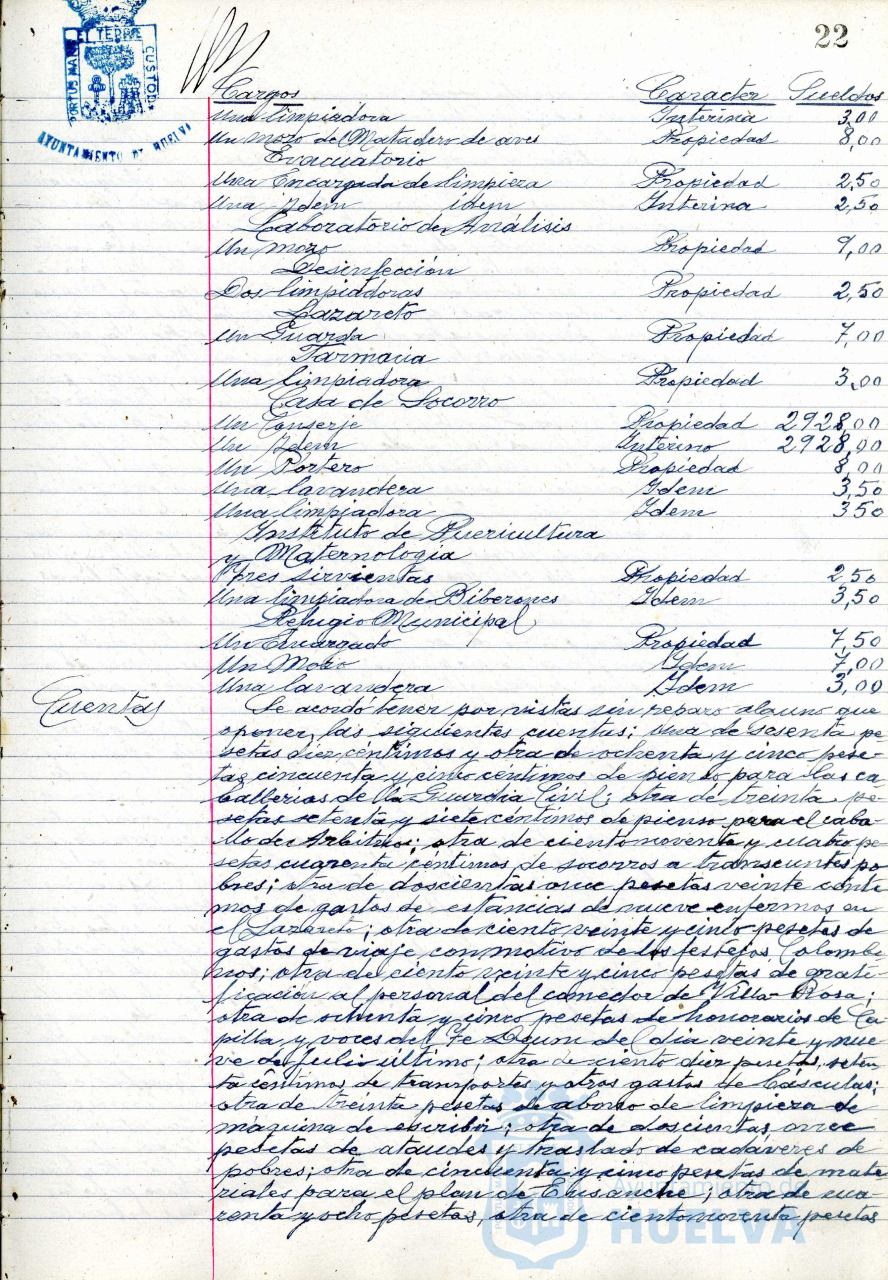 22
PORTUS MARIS ET TERRE CUSTODIA
AYUNTAMIENTO DE HUELVA
Cargos Caracter Sueldos
Una limpiadora Interina 3,00
Un mozo del Matadero de aves Propiedad 8,00
Evacuatorio
Una Encargada de limpieza Propiedad 2,50
Una Idem idem Interina 2,50
Laboratorio de Análisis
Un mozo Propiedad 9,00
Desinfección
Dos limpiadoras Propiedad 2,50
Lazareto
Un Guarda Propiedad 7,00
Farmacia
Una limpiadora Propiedad 3,00
Casa de Socorro
Un Conserje Propiedad 2928,00
Un Idem Interino 2928,00
Un Portero Propiedad 8,00
Una lavandera Idem 3,50
Una limpiadora Idem 350
Instituto de Puericultura
y Maternología
Tres sirvientas Propiedad 2,50
Una limpiadora de Biberones Idem 3,50
Refugio Municipal
Un Encargado Propiedad 7,50
Un Mozo Idem 7,00
Una lavandera Idem 3,00
Cuentas
Se acordó tener por vistas sin reparo alguno que
oponer, las siguientes cuentas; una de sesenta pe
setas diez céntimos y otra de ochenta y cinco pese-
tas cincuenta y cinco céntimos de pienso para las ca
ballerias de la Guardia Civil; otra de treinta pe-
setas setenta y siete céntimos de pienso para el caba
llo de Arbitrios; otra de ciento noventa y cuatro pe
setas cuarenta céntimos de socorros a transeuntes po
bres; otra de doscientas once pesetas veinte cénti
mos de gastos de estancias de nueve enfermos en
el Lazareto; otra de ciento veinte y cinco pesetas de
gastos de viaje con motivo de los festejos Colombi-
nos; otra de ciento veinte y cinco pesetas de grati-
ficación al personal del comedor de Villa-Rosa;
otra de ochenta y cinco pesetas de honorarios de Ca
pilla y voces del Te Deum del dia veinte y nue-
ve de Julio último; otra de ciento diez pesetas, seten
ta céntimos de transportes y otros gastos de Básculas;
otra de treinta pesetas de abono de limpieza de
máquina de escribir; otra de doscientas once
pesetas de ataudes y traslado de cadáveres de
pobres; otra de cincuenta y cinco pesetas de mate-
riales para el plan de Ensanche; otra de cua-
renta y ocho pesetas, otra de ciento noventa pesetas
Ayuntamiento de
HUELVA